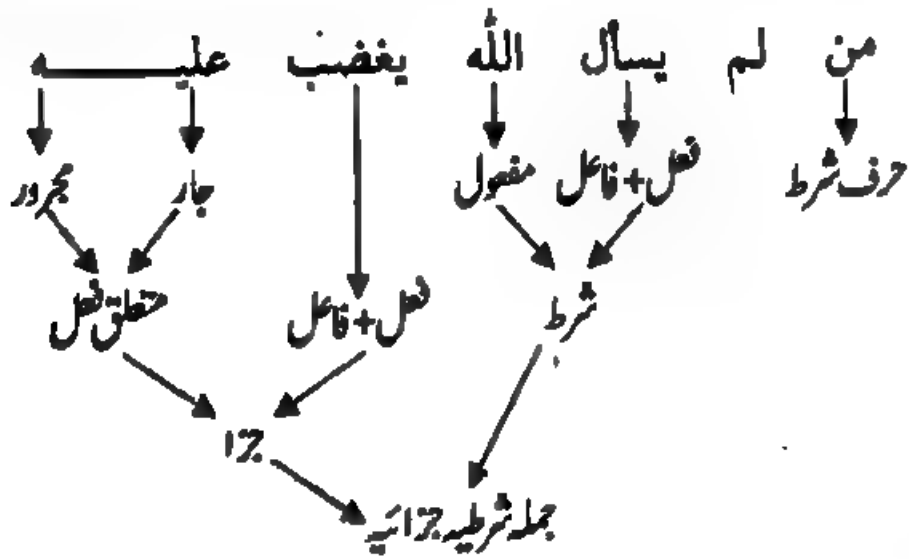 من لم يسأل الله يغضب عليه
حرف شرط فعل+فاعل مفعول جار مجرور
شرط فعل+فاعل متعلق فعل
جزا
جملہ شرطیہ جزائیہ